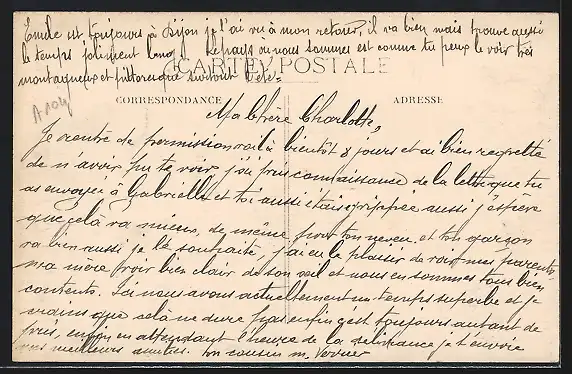 Emile est toujours à Dijon je l'ai vu à mon retour, il va bien mais trouve aussi
le temps joliment long. Le pays ou nous sommes est comme tu peux le voir très
montagneux et pittoresque surtout l'été
CARTE POSTALE
CORRESPONDANCE
ADRESSE
Ma chère Charlotte,
Je rentre de permission voilà bientôt 8 jours et ai bien regretté
de n'avoir pu te voir j'ai pris connaissance de la lettre que tu
as envoyée à Gabrielle et toi aussi étais grippée aussi j'espère
que celà va mieux, de même pour ton neveu et ton garçon
va bien aussi je le souhaite, j'ai eu le plaisir de voir mes parents
ma mère voir bien clair de son œil et nous en sommes tous bien
contents. Ici nous avons actuellement un temps superbe et je
voudrais que celà ne dure pas enfin c'est toujours autant de
pris, enfin en attendant l'heure de la délivrance je t'envoie
mes meilleurs amitiés. ton cousin m.